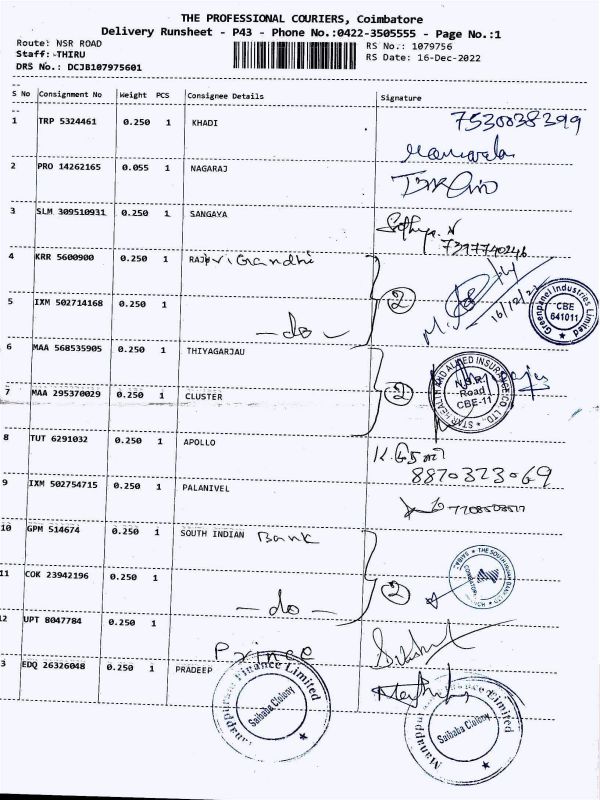 THE PROFESSIONAL COURIERS, Coimbatore
Delivery Runsheet - P43 - Phone No.:0422-3505555 - Page No.:1
Route: NSR ROAD RS No.: 1079756
Staff: -THIRU RS Date: 16-Dec-2022
DRS No.: DCJB107975601
S No Consignment No Weight PCS Consignee Details Signature
1 TRP 5324461 0.250 1 KHADI 7530038399
2 PRO 14262165 0.055 1 NAGARAJ
3 SLM 309510931 0.250 1 SANGAYA Sathya. N
7397740246
4 KRR 5600900 0.250 1 RAJ Gandhi
5 IXM 502714168 0.250 1 2 16/12/22
-do-
Greenpanel Industries Limited
CBE
641011
6 MAA 568535905 0.250 1 THIYAGARJAU
7 MAA 295370029 0.250 1 CLUSTER 2
STAR HEALTH AND ALLIED INSURANCE CO. LTD.
N.S.R.
Road
CBE-11
8 TUT 6291032 0.250 1 APOLLO
8870323069
9 IXM 502754715 0.250 1 PALANIVEL
10 GPM 514674 0.250 1 SOUTH INDIAN Bank
11 COK 23942196 0.250 1 2
-do-
12 UPT 8047784 0.250 1
Prince
3 EDQ 26326048 0.250 1 PRADEEP
Manappuram Finance Limited
Saibaba Colony
Manappuram Finance Limited
Saibaba Colony